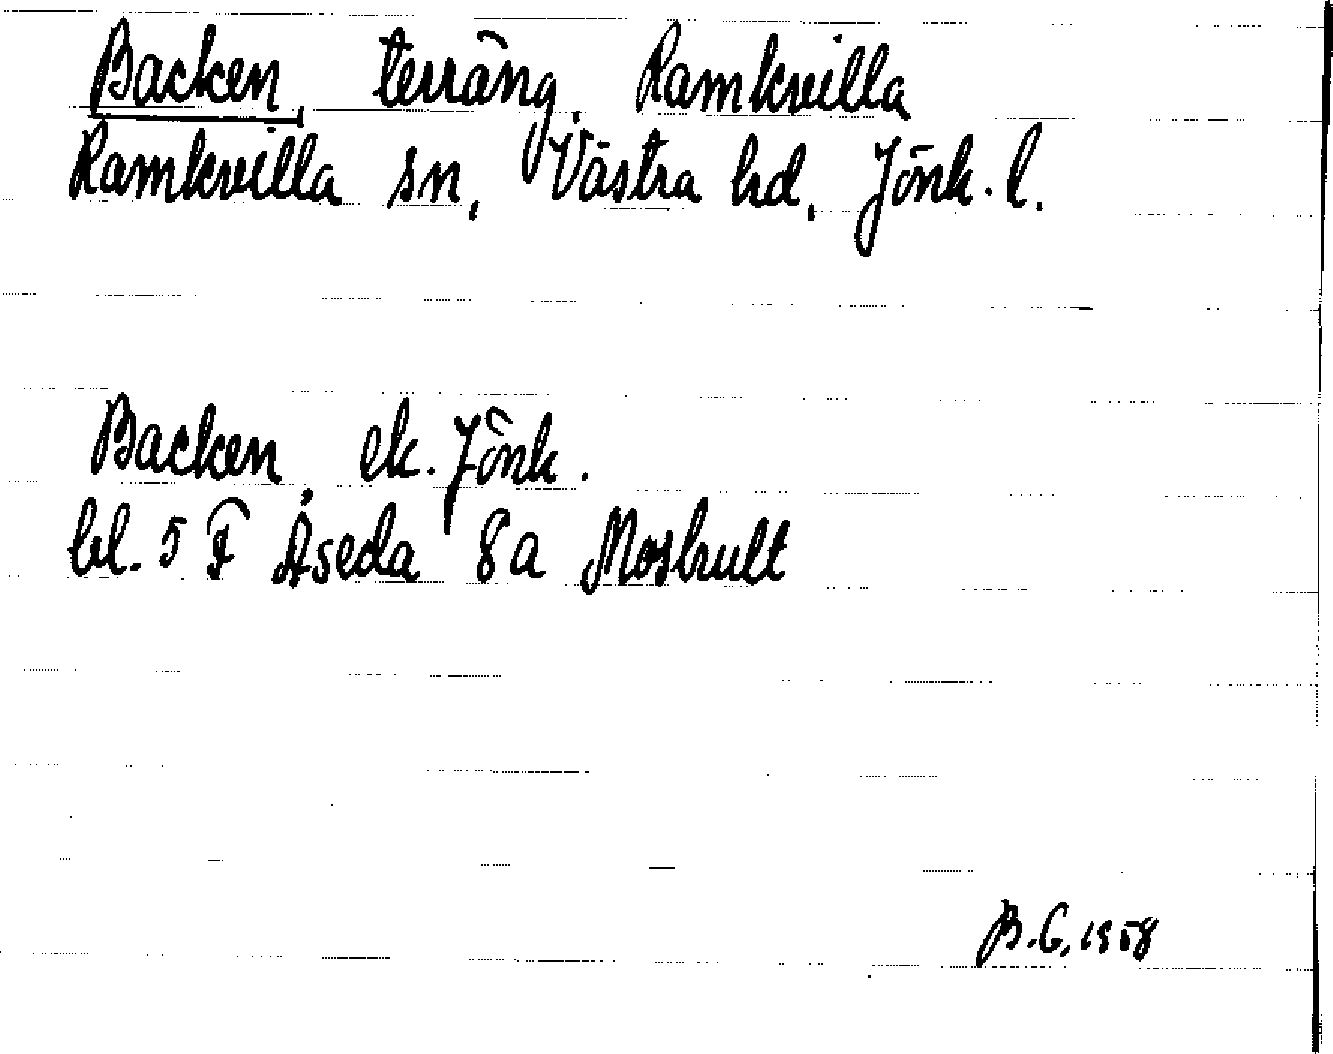 Backen, terräng, Ramkvilla
Ramkvilla sn, Västra hd, Jönk. l.
Backen, ek. Jönk.
bl. 5 F Åseda 8a Moshult
B.G. 1958